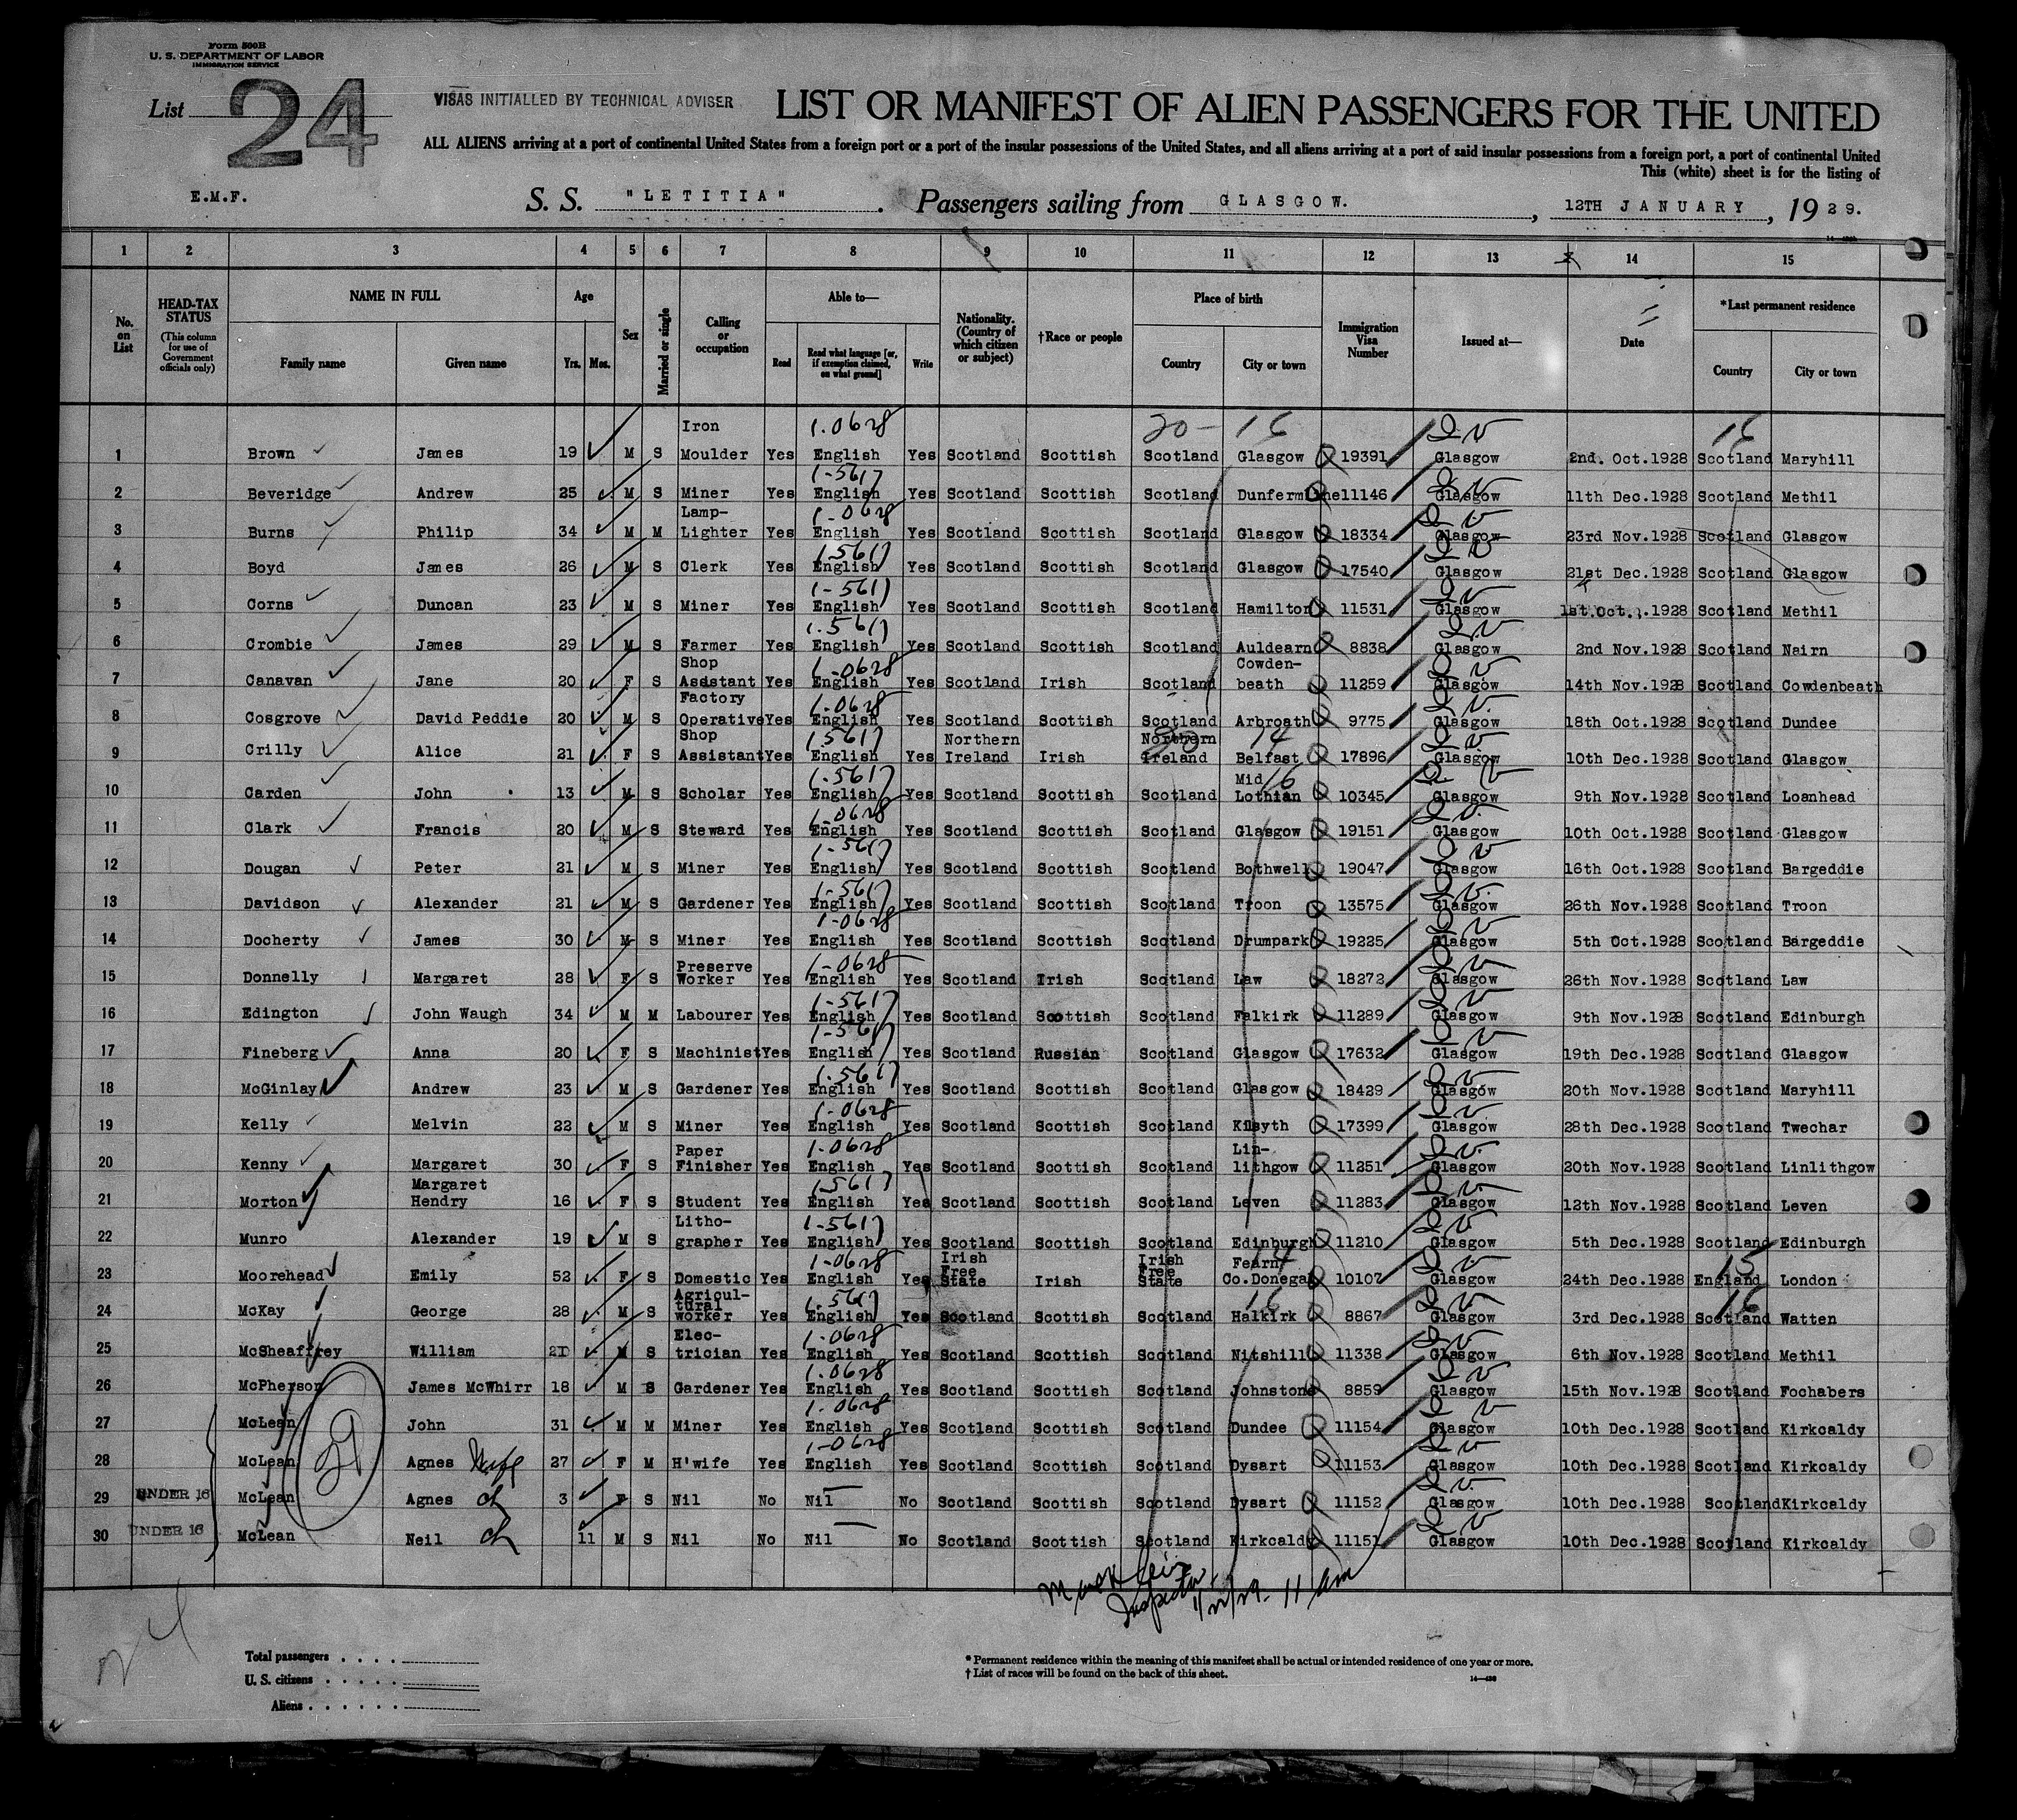 Form 500B
U. S. DEPARTMENT OF LABOR
IMMIGRATION SERVICE
List 24
VISAS INITIALLED BY TECHNICAL ADVISER
LIST OR MANIFEST OF ALIEN PASSENGERS FOR THE UNITED
ALL ALIENS arriving at a port of continental United States from a foreign port or a port of the insular possessions of the United States, and all aliens arriving at a port of said insular possessions from a foreign port, a port of continental United
This (white) sheet is for the listing of
E.M.F.
S. S. "LETITIA". Passengers sailing from GLASGOW. , 12TH JANUARY, 1929.
1 2 3 4 5 6 7 8 9 10 11 12 13 14 15
No. on List
HEAD-TAX STATUS
(This column for use of Government officials only)
NAME IN FULL
Family name Given name
Age
Yrs. Mos.
Sex
Married or single
Calling or occupation
Able to—
Read Read what language [or, if exemption claimed, on what ground] Write
Nationality. (Country of which citizen or subject)
†Race or people
Place of birth
Country City or town
Immigration Visa Number
Issued at—
Date
*Last permanent residence
Country City or town
20 - 16 16
1 Brown James 19 M S Iron Moulder Yes English 1-0628 Yes Scotland Scottish Scotland Glasgow 19391 Glasgow 2nd. Oct.1928 Scotland Maryhill
2 Beveridge Andrew 25 M S Miner Yes English 1-5617 Yes Scotland Scottish Scotland Dunfermline 11146 Glasgow 11th Dec.1928 Scotland Methil
3 Burns Philip 34 M M Lamp-Lighter Yes English 1-0628 Yes Scotland Scottish Scotland Glasgow 18334 Glasgow 23rd Nov.1928 Scotland Glasgow
4 Boyd James 26 M S Clerk Yes English 1-5617 Yes Scotland Scottish Scotland Glasgow 17540 Glasgow 21st Dec.1928 Scotland Glasgow
5 Corns Duncan 23 M S Miner Yes English 1-5617 Yes Scotland Scottish Scotland Hamilton 11531 Glasgow 1st.Oct.,.1928 Scotland Methil
6 Crombie James 29 M S Farmer Yes English 1-5617 Yes Scotland Scottish Scotland Auldearn 8838 Glasgow 2nd Nov.1928 Scotland Nairn
7 Canavan Jane 20 F S Shop Assistant Yes English 1-0628 Yes Scotland Irish Scotland Cowden-beath 11259 Glasgow 14th Nov.1928 Scotland Cowdenbeath
8 Cosgrove David Peddie 20 M S Factory Operative Yes English 1-0628 Yes Scotland Scottish Scotland Arbroath 9775 Glasgow 18th Oct.1928 Scotland Dundee
9 Crilly Alice 21 F S Shop Assistant Yes English 1-5617 Yes Northern Ireland Irish Northern Ireland Belfast 14 17896 Glasgow 10th Dec.1928 Scotland Glasgow
10 Carden John 13 M S Scholar Yes English 1-5617 Yes Scotland Scottish Scotland Mid Lothian 16 10345 Glasgow 9th Nov.1928 Scotland Loanhead
11 Clark Francis 20 M S Steward Yes English 1-0628 Yes Scotland Scottish Scotland Glasgow 19151 Glasgow 10th Oct.1928 Scotland Glasgow
12 Dougan Peter 21 M S Miner Yes English 1-5617 Yes Scotland Scottish Scotland Bothwell 19047 Glasgow 16th Oct.1928 Scotland Bargeddie
13 Davidson Alexander 21 M S Gardener Yes English 1-5617 Yes Scotland Scottish Scotland Troon 13575 Glasgow 26th Nov.1928 Scotland Troon
14 Docherty James 30 M S Miner Yes English 1-0628 Yes Scotland Scottish Scotland Drumpark 19225 Glasgow 5th Oct.1928 Scotland Bargeddie
15 Donnelly Margaret 28 F S Preserve Worker Yes English 1-0628 Yes Scotland Irish Scotland Law 18272 Glasgow 26th Nov.1928 Scotland Law
16 Edington John Waugh 34 M M Labourer Yes English 1-5617 Yes Scotland Scottish Scotland Falkirk 11289 Glasgow 9th Nov.1928 Scotland Edinburgh
17 Fineberg Anna 20 F S Machinist Yes English 1-5617 Yes Scotland Russian Scotland Glasgow 17632 Glasgow 19th Dec.1928 Scotland Glasgow
18 McGinlay Andrew 23 M S Gardener Yes English 1-5617 Yes Scotland Scottish Scotland Glasgow 18429 Glasgow 20th Nov.1928 Scotland Maryhill
19 Kelly Melvin 22 M S Miner Yes English 1-0628 Yes Scotland Scottish Scotland Kilsyth 17399 Glasgow 28th Dec.1928 Scotland Twechar
20 Kenny Margaret 30 F S Paper Finisher Yes English 1-0628 Yes Scotland Scottish Scotland Lin-lithgow 11251 Glasgow 20th Nov.1928 Scotland Linlithgow
21 Morton Margaret Hendry 16 F S Student Yes English 1-5617 Yes Scotland Scottish Scotland Leven 11283 Glasgow 12th Nov.1928 Scotland Leven
22 Munro Alexander 19 M S Litho-grapher Yes English 1-5617 Yes Scotland Scottish Scotland Edinburgh 11210 Glasgow 5th Dec.1928 Scotland Edinburgh
23 Moorehead Emily 52 F S Domestic Yes English 1-0628 Yes Irish Free State Irish Irish Free State Fearn Co.Donegal 14 10107 Glasgow 24th Dec.1928 England 15 London
24 McKay George 28 M S Agricul-tural worker Yes English 1-5617 Yes Scotland Scottish Scotland Halkirk 16 8867 Glasgow 3rd Dec.1928 Scotland 16 Watten
25 McSheaffrey William 21 M S Elec-trician Yes English 1-0628 Yes Scotland Scottish Scotland Nitshill 11338 Glasgow 6th Nov.1928 Scotland Methil
26 McPherson James McWhirr 18 M S Gardener Yes English 1-0628 Yes Scotland Scottish Scotland Johnstone 8859 Glasgow 15th Nov.1928 Scotland Fochabers
27 McLean John 31 M M Miner Yes English 1-0628 Yes Scotland Scottish Scotland Dundee 11154 Glasgow 10th Dec.1928 Scotland Kirkcaldy
28 McLean Agnes Wife 27 F M H'wife Yes English 1-0628 Yes Scotland Scottish Scotland Dysart 11153 Glasgow 10th Dec.1928 Scotland Kirkcaldy
29 UNDER 16 McLean Agnes ch 3 F S Nil No Nil No Scotland Scottish Scotland Dysart 11152 Glasgow 10th Dec.1928 Scotland Kirkcaldy
30 UNDER 16 McLean Neil ch 11 M S Nil No Nil No Scotland Scottish Scotland Kirkcaldy 11151 Glasgow 10th Dec.1928 Scotland Kirkcaldy
Inspector 1/22/29. 11 am
24
Total passengers . . . .
U.S. citizens . . . . .
Aliens . . . . . .
* Permanent residence within the meaning of this manifest shall be actual or intended residence of one year or more.
† List of races will be found on the back of this sheet.